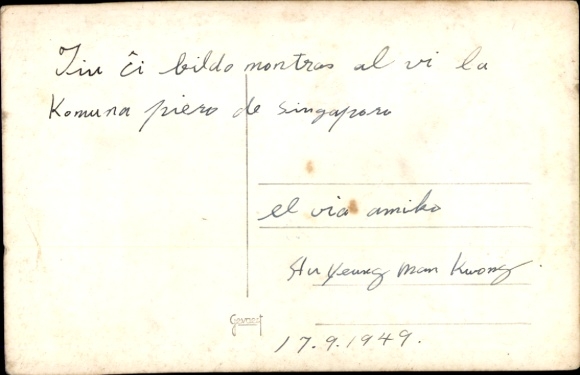 Tiu ĉi bildo montras al vi la
Komuna piero de Singaporo
el via amiko
Au Yeung Man Kwong.
Gevaert
17.9.1949.